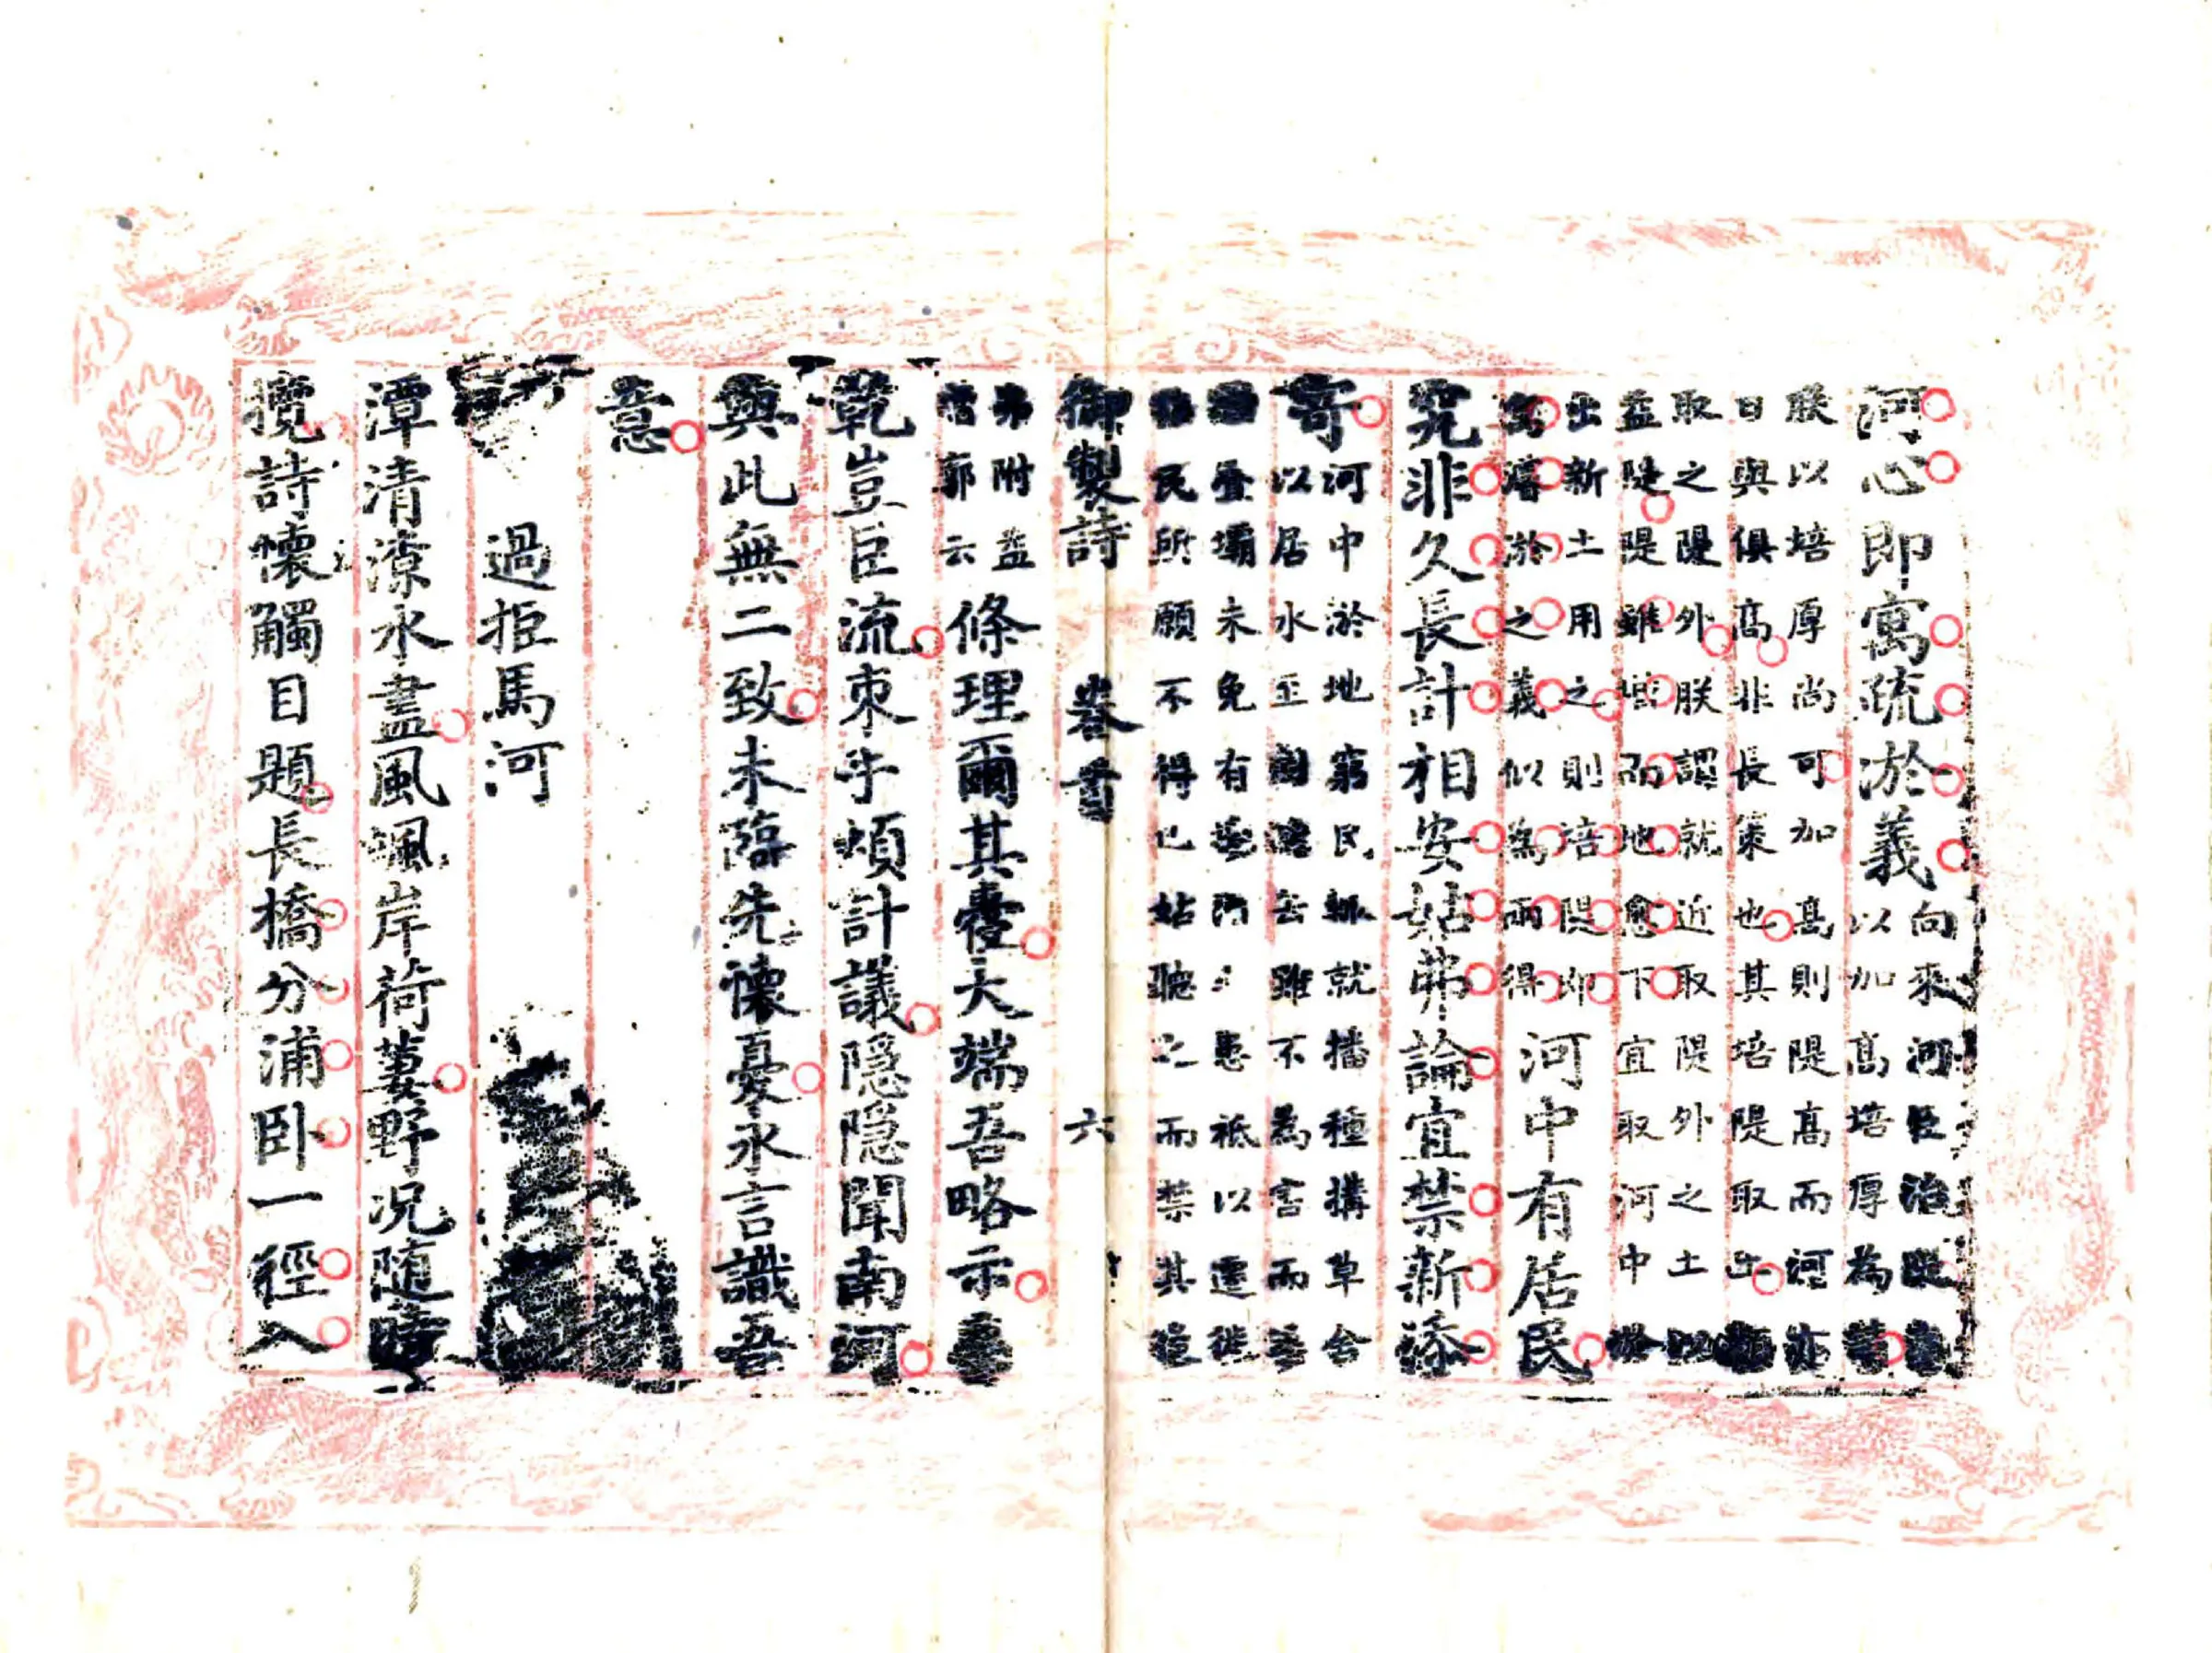 河心即寓疏淤義向來河臣治隄
以加高培厚為
朕以培厚尚可加高則隄高而河亦
日與俱高非長策也其培隄取土
取之隄外朕謂就近取隄外之土以
益隄隄雖增而地愈下宜取河中
出新土用之則培隄即
寓濬淤之義似為兩得河中有居民
究非久長計相安姑弗論宜禁新添
寄河中淤地窮民輒就播種搆草舍
以居水至則避去雖不為害而
壩未免有患祗以遷徙
民所願不得已姑聽之而禁其
御製詩 卷 六
附益
郭云條理爾其大端吾略示
乾豈臣流束手煩計議隱隱聞南河
與此無二致未臨先懷憂永言識吾
意
過拒馬河
潭清潦水盡風颯岸荷萎野况随
攬詩懷觸目題長橋分浦卧一徑入